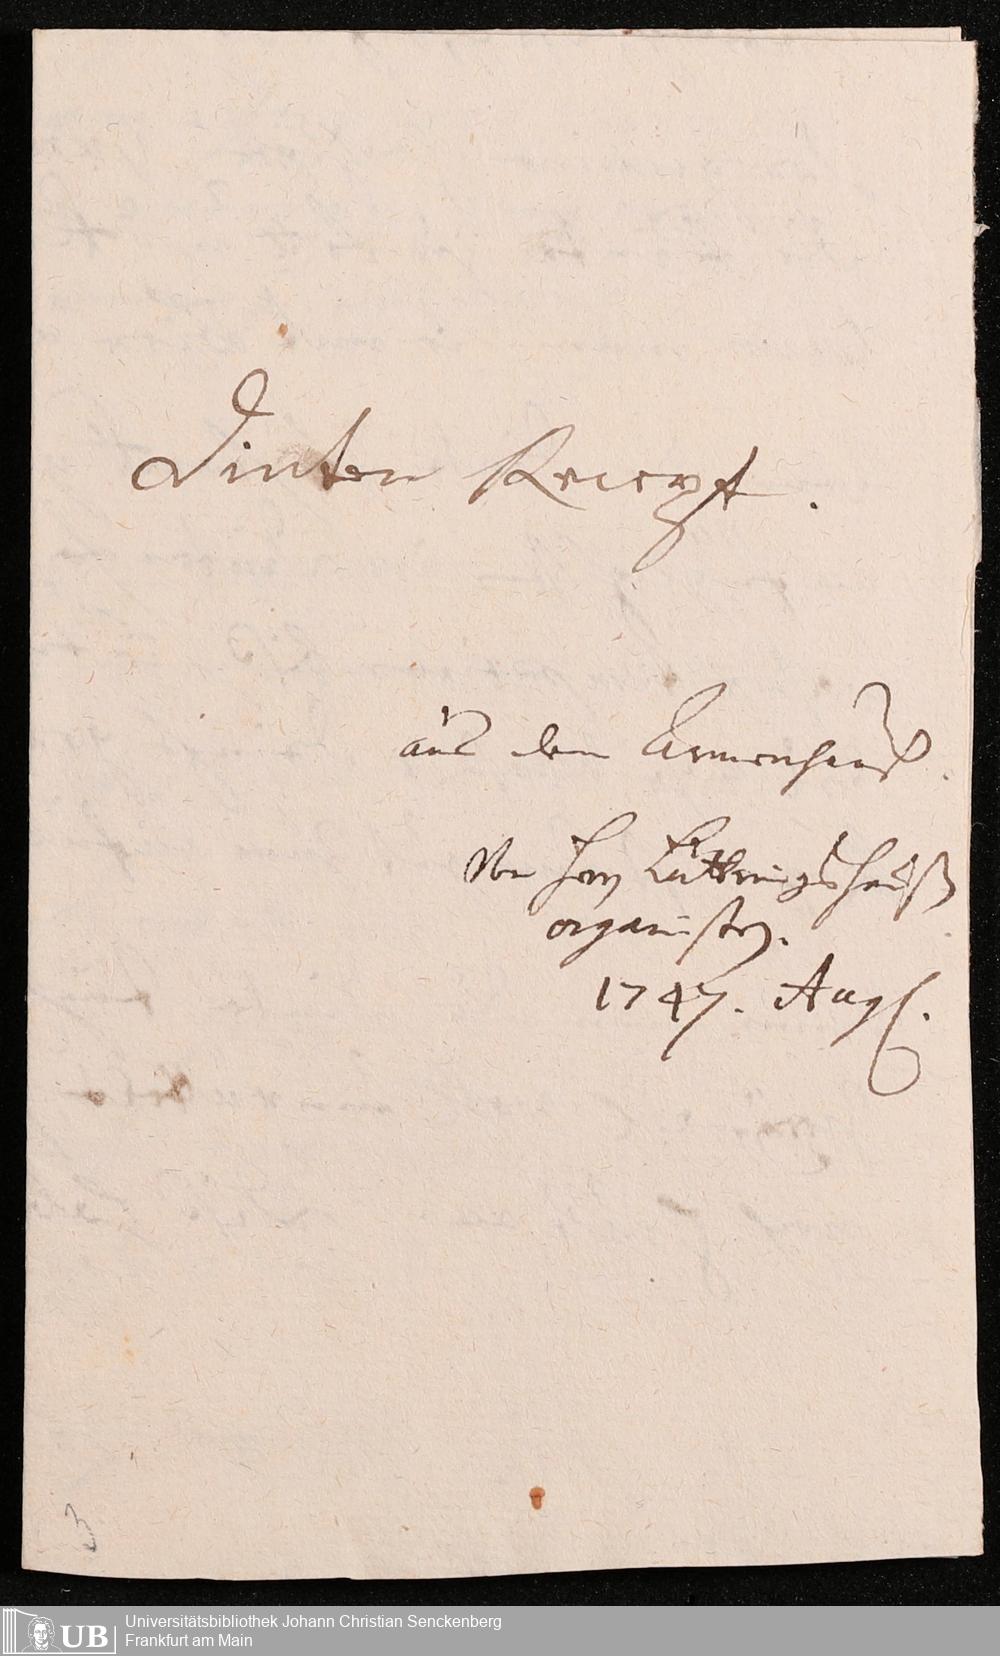 Dinten Recept.
aus dem Armenhauß.
Von Herrn
organisten.
1747. Aug.
3
UB Universitätsbibliothek Johann Christian Senckenberg
Frankfurt am Main